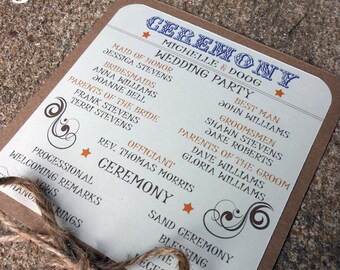 CEREMONY
MICHELLE & DOUG
WEDDING PARTY
MAID OF HONOR
JESSICA STEVENS
BRIDESMAIDS
ANNA WILLIAMS
JOANNE BELL
PARENTS OF THE BRIDE
FRANK STEVENS
TERRI STEVENS
BEST MAN
JOHN WILLIAMS
GROOMSMEN
SHAWN STEVENS
JAKE ROBERTS
PARENTS OF THE GROOM
DAVE WILLIAMS
GLORIA WILLIAMS
OFFICIANT
REV. THOMAS MORRIS
CEREMONY
PROCESSIONAL
WELCOMING REMARKS
SAND CEREMONY
BLESSING